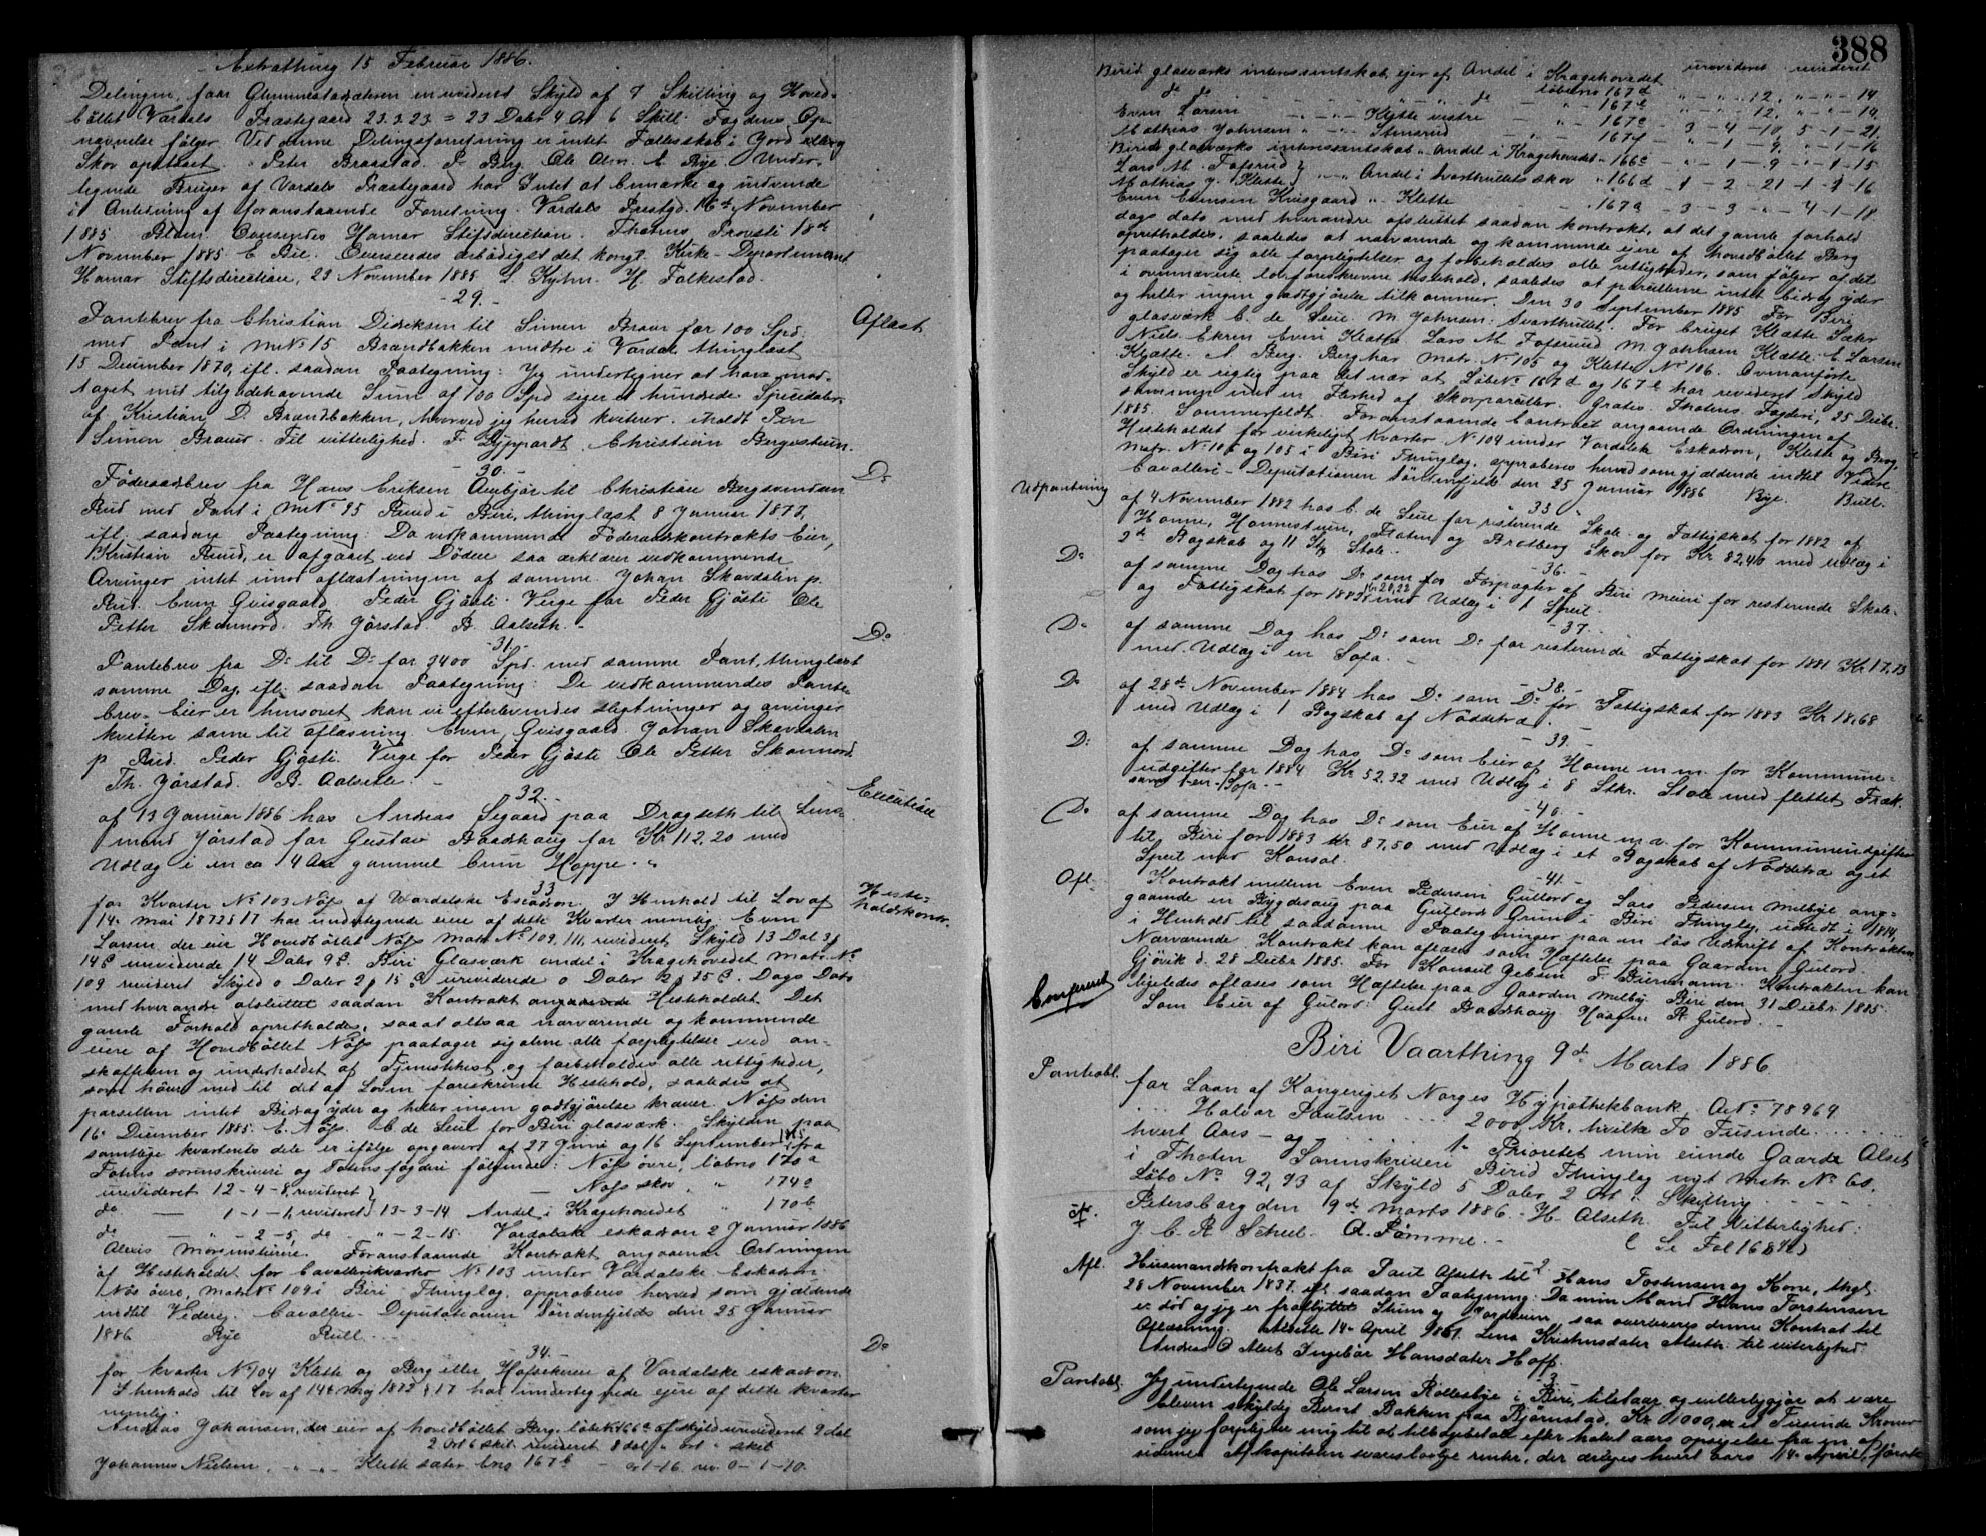 Extrathing 15 Februar 1886.
Delingen faar Glemmestadsæteren en revideret Skyld af 7 Skilling og Hoved-
bøllet Vardals Præstegaard 23.3.23 = 23 Daler 4 Ort 6 Skill. Fogdens Op-
nævnelse følger. Ved denne Delingsforretning er intet Fællesskab i Jord eller
Skov oprettet. Peter Braastad. P. Berg. Ole Alm. E. Bye. Under-
tegnede Bruger af Vardals Præstegaard har Intet at bemærke og indvende
i Anledning af foranstaaende Forretning. Vardals Prestgd. 16de November
1885 Blom. Oversendes Hamar Stiftsdirection. Thotens Provsti 18de
November 1885. E. Bie. Oversendes ærbødigst det kongl. Kirke-Departement
Hamar Stiftsdirection, 23 November 1885 L. Kyhn. H. Falkestad.
-29-
Pantebrev fra Christian Didriksen til Simen Braur for 100 Spd.
med Pant i M.No 15 Brandbakken nedre i Vardal thinglæst
15 December 1870, ifl. saadan Paategning: Jeg undertegner at have mod-
taget mit tilgodehavende Sum af 100 Spd siger et hundrede Speciedaler
af Kristian D. Brandbakken, hvorved jeg herved kvitterer. iholdt Pen
Simen Braur. Til vitterlighed. F. Lyppardt. Christian Bergersteun.
Aflæst
-30-
Føderaadsbrev fra Hans Eriksen Aasbjør til Christian Bergsvendsen
Rud med Pant i M.No 25 Ruud i Biri, thinglæst 8 Januar 1877,
ifl. saadan Paategning: Da vedkommende Føderaadskontrakts Eier,
Kristian Ruud, er afgaaet ved Døden saa erklærer vedkommende
Arvinger intet imod aflæsningen af samme. Johan Skavdalen p.
Rud. Even Qvisgaard. Peder Gjøsti. Verge for Peder Gjøsti Ole
Petter Skonnord. Th. Jørstad B. Aalseth. -
Do
-31-
Pantebrev fra Do til Do for 3400 Spd. med samme Pant, thinglæst
samme Dag, ifl. saadan Paategning: De vedkommendes Pante-
brev-Eier er hensovet kan vi efterlevendes slegtninger og arvinger
kvittere same til aflæsning Even Qvisgaard Johan Skavdalen
p Rud. Peder Gjøsti. Verge for Peder Gjøsti Ole Petter Skonnord
Th. Jørstad. B. Aalseth -
Do
-32-
af 13 Januar 1886 hos Andreas Segaard paa Dragseth til Lens-
mand Jørstad for Gustav Baadshaug for Kr. 112,20 med
Udlæg i en ca 14 Aar gammel brun Hoppe. "
Execution
33
for Kvarter No 103 Nøss af Wardalske Escadron. I Henhold til Lov af
14. mai 1872 § 17 har undertegnede eiere af dette Kvarter nemlig: Even
Larsen der eier Hovedbøllet Nøss matr No 109, 111, revideret Skyld 13 Dal 3 ₰
14 ₰ urevidered 14 Daler 9 ₰. Biri Glasværk andel i Kragehovedet matr. No
109 revideret Skyld 0 Daler 2 ₰ 15 ₰ urevidered 0 Daler 2 ₰ 25 ₰. Dags Dato
med hverandre afsluttet saadan Kontrakt angaaende Hesteholdet. Det
gamle Forhold opretholdes, saaat altsaa nærværende og kommende
eiere af Hovedbøllet Nøss paatager sig alene alle forpligtelser ved an-
skaffelsen og underholdet af Tjenestehest og forbeholdes alle rettigheder,
som hører med til det af Loven foreskrevne Hestehold, saaledes at
parsellen intet Bidrag yder og heller ingen godtgjørelse kræver. Nøss den
16. December 1885. E. Nøss. C. de Seue for Biri glasværk. Skylden paa
samtlige kvarterets dele er ifølge opgaver af 27 Juni og 16 September 1885 fra
Totens sorenskriveri og Totens fogderi følgende: Nøss øvre, løbeno 170 a
urevideret 12-4-8, revideret } - Nøss skov " 174 c
do - 1-1-1, revideret } 13-3-14 Andel i Kragehovedet " 170 b
do - " - 2-5, do. - " - 2-15. Vardalske eskadron 2 Januar 1886
Alexis Morgenstierne. Foranstaaende Kontrakt angaaende Ordningen
af Hesteholdet for Cavallerikvarter No 103 under Vardalske Eskadron
Nøss øvre, Matr No 109 i Biri Thinglag, approberes herved som gjældende
indtil Videre. Cavalleri-Deputationen Søndenfjelds den 25 Januar
1886 Bye Bull. -
Heste-
holdskontr.
34.
for kvarter No 104 Klette og Berg eller Hofsekeren af Vardalske eskadron
I henhold til Lov af 14de Maj 1872 § 17 har undertegnede ejere af dette kvarter
nemlig:
Andreas Johansen, der eier af hovedbøllet Berg løbe No 166a af skyld urevideret 9 dal
2 Ort 6 skil. revideret 8 dal " ort " skil
Johannes Nielsen, - " - Klette sæter Lno 167 b - or 1-16. rev. 0-1-10.
Do
388
Birid glasværks interessentskab, ejer af Andel i Kragehovedet urevideret revideret
do do - - - - " - " - do løbeno 167 d " - " - 12, " - " - 14
Even Larsen - " - - Klette vestre - " - 167 e " - " - 12, " - " - 14,
Mathias Johnsen " - " - Stensrud - " - 167 c - 3 - 4 - 10, 5 - 1 - 21,
Birids glasværks interessentskab " Andel i Kragehovedet " 166 c - " - 1 - 9, " - 1 - 16
Lars M. Fossrud } " - " - Andel i Svarthullets skov " 166 d - 1 - 2 - 21 - 1 - 3 - 16
Mathias J. Klette }
Even Evensen Kvisgaard " - Klette - - " 167 a - 3 - 3 - " - 4 - 1 - 18.
dags dato med hverandre afsluttet saadan kontrakt, at det gamle forhold
opretholdes, saaledes at nærværende og kommende ejere af hovedbøllet Berg
paatager sig alle forpligtelser og forbeholdes alle rettigheder, som følger af det
i ovennævnte lov foreskrevne hestehold, saaledes at parcellerne intet bidrag yder
og heller ingen godtgjørelse tilkommer. Den 30 September 1885 For Biri
glasværk C. de Seue. M. Johnsen: Svarthullet. For bruget Klætte Sæter
Niels Ekren Even Klætte Lars M. Fossrud M. Johnsen Klætte. E. Larsen
Klætte. A. Berg. Berg har Matr. No 105 og Klette No 106. Ovenanførte
Skyld er rigtig paa det nær at Løbe No 167 d og 167 e har revideret Skyld
sammen med en Flerhed af Skovparceller. Gratis. Thotens Fogderi, 25 Decbr.
1885. Sommerfeldt. Foranstaaende Contract angaaende Ordningen af
Hesteholdet for virkeligt Kvarter No 104 under Vardalske Eskadron, Klette og Berg,
Matr. No 106 og 105 i Biri Thinglag, approberes herved som gjældende indtil Videre.
Cavalleri-Deputationen Søndenfjelds den 25 Januar 1886 Bye. Bull.
35
Udpantning af 4 November 1882 hos C. de Seue for resterende Skole- og Fattigskat for 1882 af
Honne, Honnestuen, Floten og Bratberg Skov for Kr. 82,40 med Udlæg i
2 de Bogskab og 11 Stk Stole.
-36-
Do af samme Dag hos Do som for Forpagter af Biri Meieri for resterende Skole-
og Fattigskat for 1882 Kr. 20,22 med Udlæg i 1 Speil.
-37-
Do af samme Dag hos Do som Do for resterende Fattigskat for 1881 Kr. 17,73
med Udlæg i en Sofa. -
-38-
Do af 28de November 1884 hos Do som Do for Fattigskat for 1883 Kr 18,68
med Udlæg i 1 Bogskab af Nøddetræ.
-39-
Do af samme Dag hos Do som Eier af Honne m.m. for Kommune-
udgifter for 1884 Kr. 52,32 med Udlæg i 8 Stkr. Stole med flettet Træk
samt 1 en Sofa -
-40-
Do af samme Dag hos Do som Eier af Honne m.v. for Kommuneudgifter
til Biri for 1883 Kr 87,50 med Udlæg i et Bogskab af Nøddetræ og et
Speil med Konsol.
-41-
Afl. Kontrakt mellem Even Pedersen Gullord og Lars Pedersen Melbye ang-
gaaende en Bygdevei paa Gullords Grund i Biri Thinglag, udstedt i 1814,
i Henhold til saadanne Paategninger paa en løs Udskrift af Kontrakten
Nærværende Kontrakt kan aflæses som Hæftelse paa Gaarden Gulord
Gjøvik d. 28 Decbr 1885. For Konsul Gebsen F. Biermann. Kontrakten kan
ligeledes aflæses som Hæftelse paa Gaarden Melby. Biri den 31 Decbr. 1885.
Som Eier af Gulord: Gust Baadshaug Haagen R. Gulord.
Confereret
Biri Vaarthing 9de Marts 1886.
1
Pantobl. for Laan af Kongeriget Norges Hypothekbank Act. 78964
.... Halvor Poulsen ..... 2000 Kr. hvilke To Tusinde .......
hvert Aars - og ......... 1ste Prioritet min eiende Gaard Alset
i Thoten Sorenskriveri Birid Thinglag nyt Matr. No 60.
Løbe No 92, 93 af Skyld 5 Daler 2 Ort " Skilling - - - -
Petersborg den 19de Marts 1886. H. Alseth. Til Vitterlighed:
J. C. R. Scheel. A. Rømme. - (Se Fol 168 )
2
Afl. Husmandskontrakt fra Paul Alseth til Hans Tostensen og Kone, thgl.
28 November 1837 ifl. saadan Paategning: Da min Mand Hans Torstensen
er død og jeg er fraflyttet Stuen og Jordveien, saa overleveres denne Kontrat til
Aflæsning. Alseth 14. April 1861. Lena Kristensdater Alseth. til vitterlighed
Andreas O Alset Ingebor Hansdater Hoff.
3
Pantobl. Jeg undertegnede Ole Larsen Rollesbye i Biri, tilstaar og vitterliggjør at være
bleven skyldig Bernt Bakken paa Bjørnstad, Kr. 1000, et Tusinde Kroner
som jeg forpligter mig til at tilbagebetale efter halvt aars opsigelse fra en af
siderne. Af kapitalen svares lovlige renter, der erlægges hvert aars 14. April, første